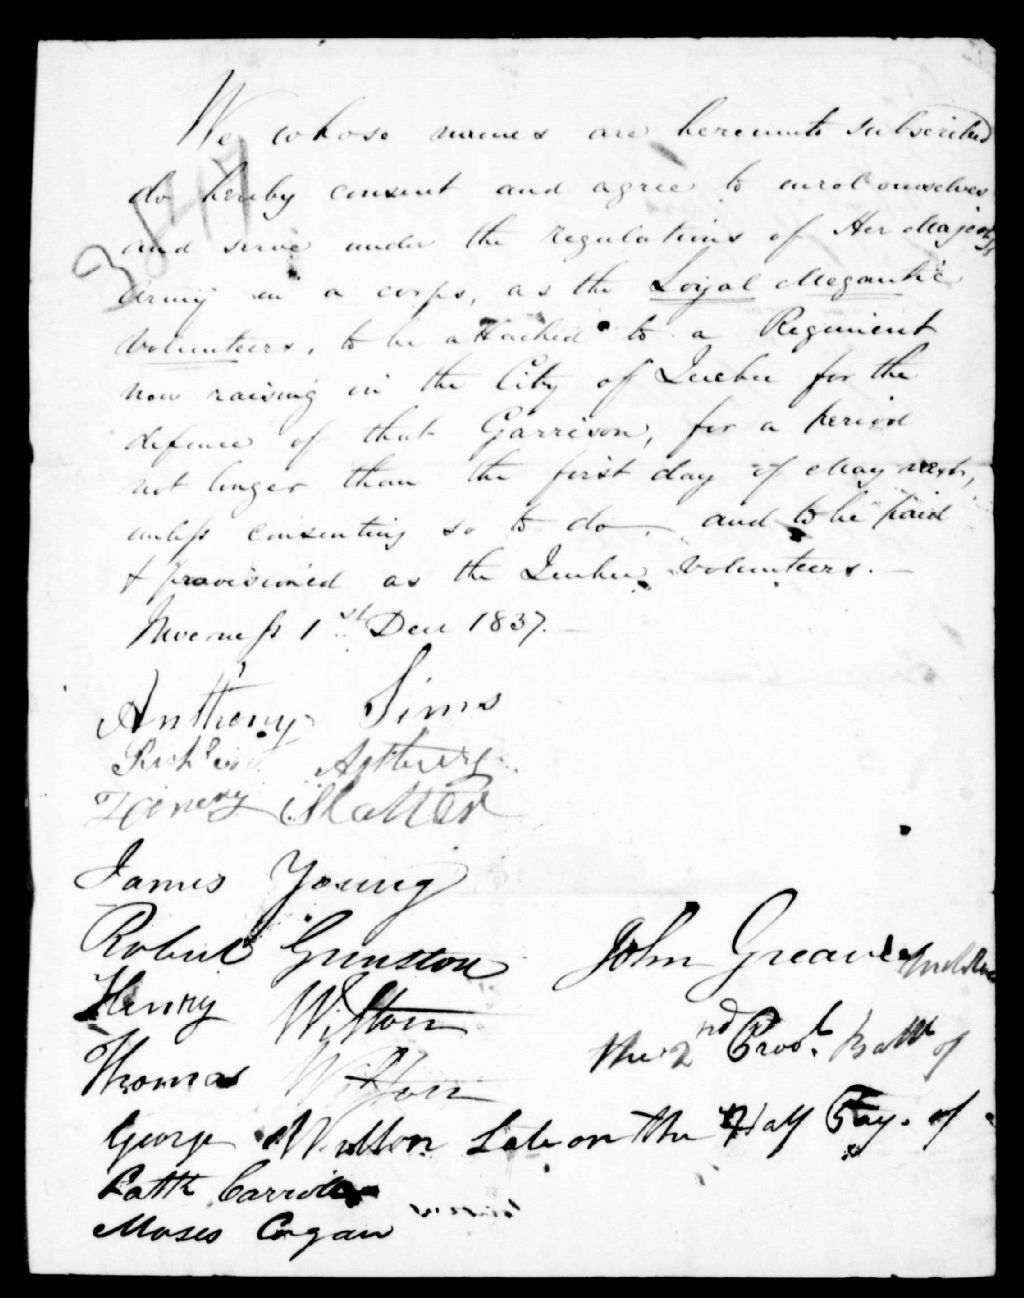 We whose names are hereunto subscribed
do hereby consent and agree to enrol ourselves
and serve under the regulations of Her Majesty's
Army in a corps, as the Loyal Megantic
Volunteers, to be attached to a Regiment
now raising in the City of Quebec for the
defence of that Garrison, for a period
not longer than the first day of May next,
unless consenting so to do, and to be paid
& provisioned as the Quebec Volunteers.—
Inverness 1st Decr 1837.—
3847
Anthony Sims
Henry Slatter
James Young
Robert Grinston
John Greaves
Henry Wilton
the 2nd Batt of
Thomas Wilton
George Wilton Late on the Half Pay. of
Patk Carroll
Moses Cogan